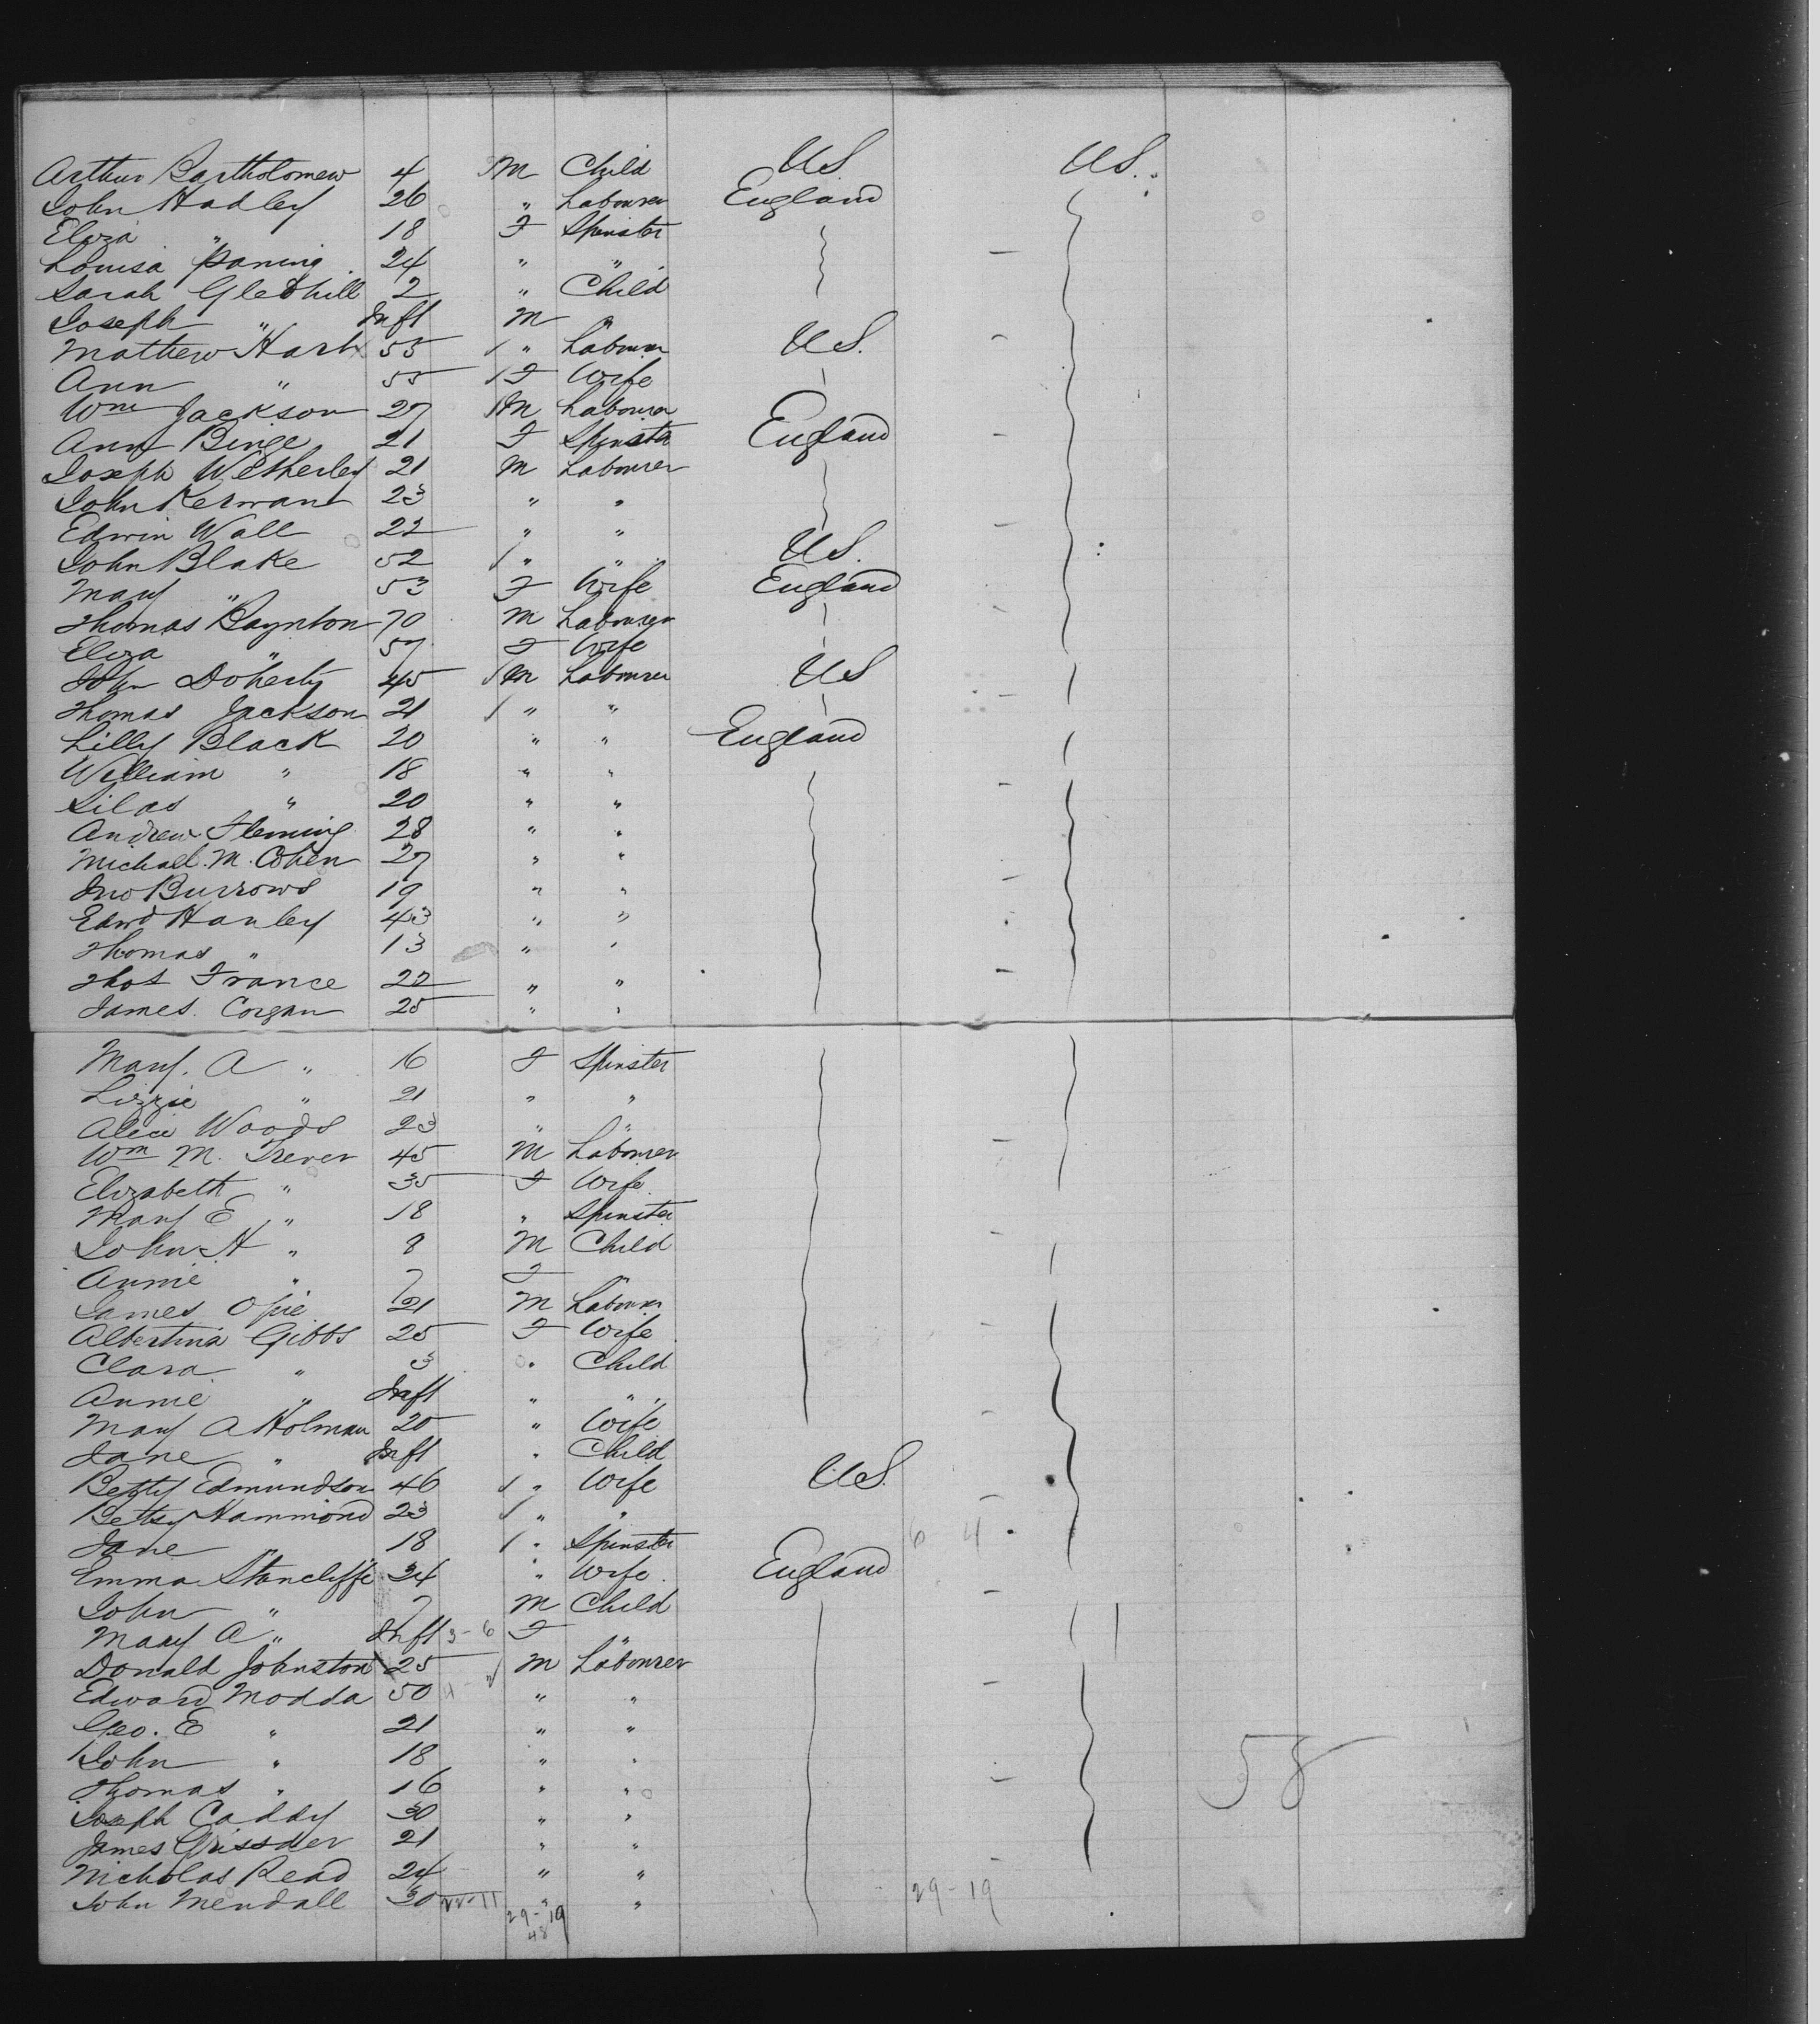 Arthur Bartholomew 4 M Child US US.
John Hadley 26 " Labourer England
Eliza " 18 F Spinster
Louisa 24 " "
Sarah Gledhill 2 " Child
Joseph " Inft M "
Mathew Hart 55 " Labourer US.
Ann " 55 F Wife
Wm Jackson 27 M Labourer
Ann Binge 21 F Spinster England
Joseph Wetherley 21 M Labourer
John Kerman 23 " "
Edwin Wall 22 " "
John Blake 52 " " US.
Mary " 53 F Wife England
Thomas Baynton 70 M Labourer
Eliza " 57 F Wife
John Doherty 45 M Labourer US
Thomas Jackson 21 " "
Lilly Black 20 " " England
William " 18 " "
Silas " 20 " "
Andrew Fleming 28 " "
Michael. M. Cohen 27 " "
Jno Burrows 19 " "
Edwd Hanley 43 " "
Thomas " 13 " "
Thos France 22 " "
James Corgan 25 " "
Mary. A " 16 F Spinster
Lizzie " 21 " "
Alice Woods 23 " "
Wm M. Trever 45 M Labourer
Elizabeth " 35 F Wife
Mary E " 18 " Spinster
John H " 8 M Child
Annie " 7 F "
James Opie 21 M Labourer
Albertina Gibbs 25 F Wife
Clara " 3 " Child
Annie " Inft " "
Mary A Holman 25 " Wife
Jane " Inft " Child
Betty Edmundson 46 " Wife US.
Betsy Hammond 23 " "
Jane " 18 " Spinster 6 4
Emma Stancliffe 24 " Wife England
John " 7 M Child
Mary A " Inft 3-6 F "
Donald Johnston 25 M Labourer
Edward Modda 50 " "
Geo. E " 21 " "
John " 18 " "
Thomas " 16 " " 58
Joseph Caddy 30 " "
James 21 " "
Nicholas Read 24 " "
John Mendall 30 22-11 " " 29-19
29-19
48